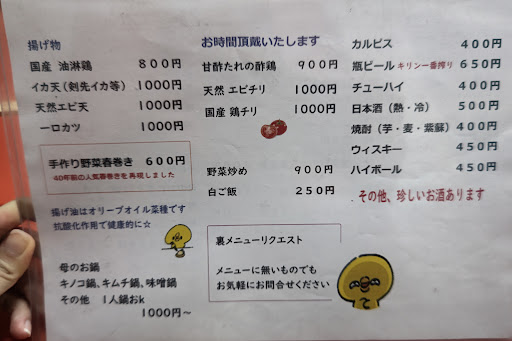 揚げ物
国産 油淋鶏 800円
イカ天（剣先イカ等） 1000円
天然エビ天 1000円
一口カツ 1000円
手作り野菜春巻き 600円
40年前の人気春巻きを再現しました
揚げ油はオリーブオイル菜種です
抗酸化作用で健康的に☆
母のお鍋
キノコ鍋、キムチ鍋、味噌鍋
その他 1人鍋おk
1000円～
お時間頂戴いたします
甘酢たれの酢鶏 900円
天然 エビチリ 1000円
国産 鶏チリ 1000円
野菜炒め 900円
白ご飯 250円
裏メニューリクエスト
メニューに無いものでも
お気軽にお問合せください
カルピス 400円
瓶ビール キリン一番搾り 650円
チューハイ 400円
日本酒（熱・冷） 500円
焼酎（芋・麦・紫蘇） 400円
ウィスキー 450円
ハイボール 450円
その他、珍しいお酒あります